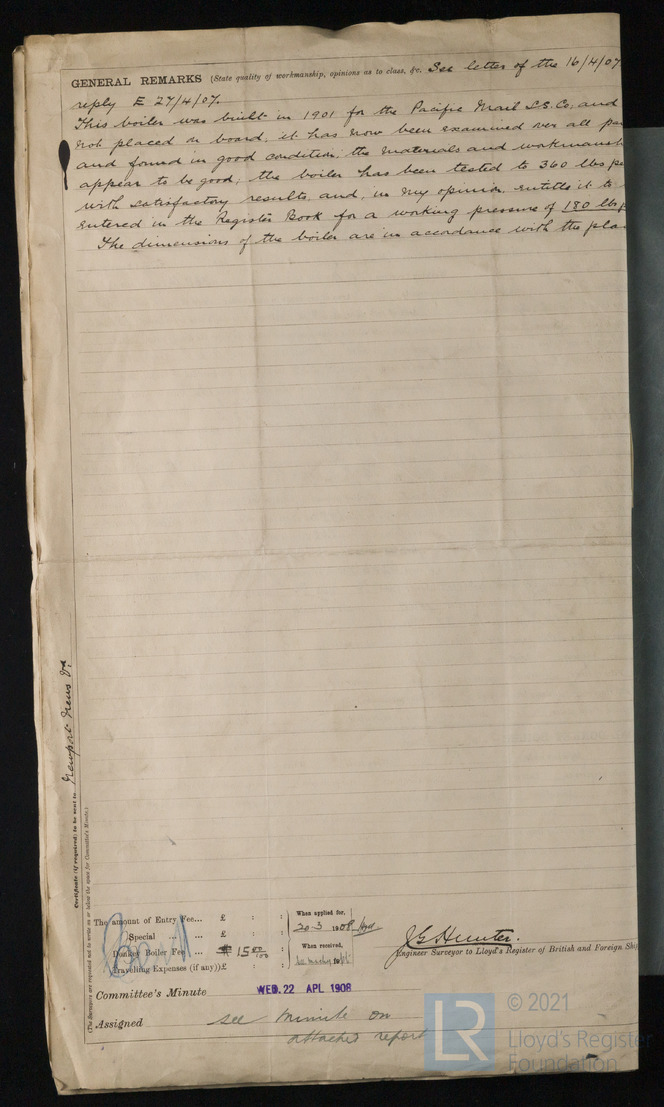 GENERAL REMARKS (State quality of workmanship, opinions as to class, &c. See letter of the 16/4/07
reply E 27/4/07.
This boiler was built in 1901 for the Pacific Mail S.S. Co, and
not placed on board, it has now been examined over all pa
and found in good condition, the materials and workmansh
appear to be good; the boiler has been tested to 360 lbs pe
with satisfactory results, and, in my opinion, entitle it to
entered in the Register Book for a working pressure of 180 lbs p
The dimensions of the boiler are in accordance with the pla
Certificate (if required) to be sent to Newport News Va.
(The Surveyors are requested not to write on or below the space for Committee's Minute.)
The amount of Entry Fee... £ : :
Special ... ... £ : :
Donkey Boiler Fee ... $ 15 00/100 :
Travelling Expenses (if any) £ : :
When applied for,
20-3 1908
When received,
J G Hunter.
Engineer Surveyor to Lloyd's Register of British and Foreign Ship
Committee's Minute WED. 22 APL 1908
Assigned see minute on
attached report
LR
© 2021
Lloyd's Register
Foundation